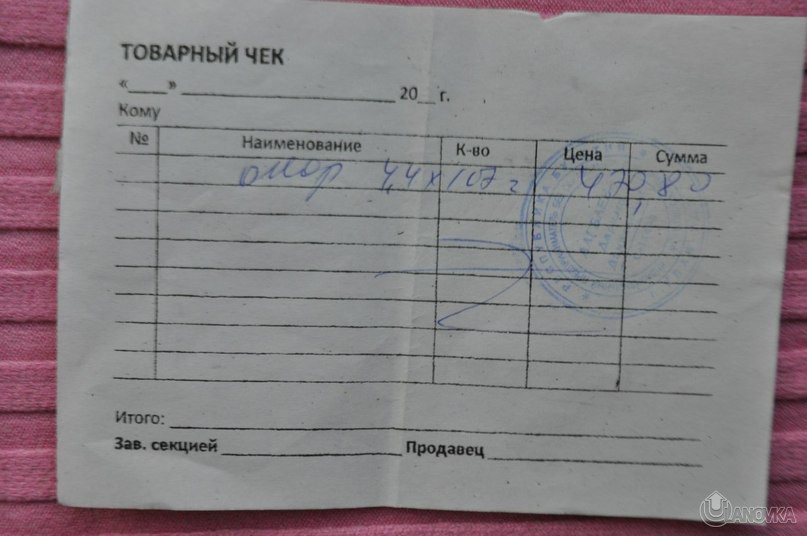 ТОВАРНЫЙ ЧЕК
«____» ______________________ 20__ г.
Кому
№ Наименование К-во Цена Сумма
4,4 х 107 = 470,80
Итого:
Зав. секцией Продавец
UANOVKA